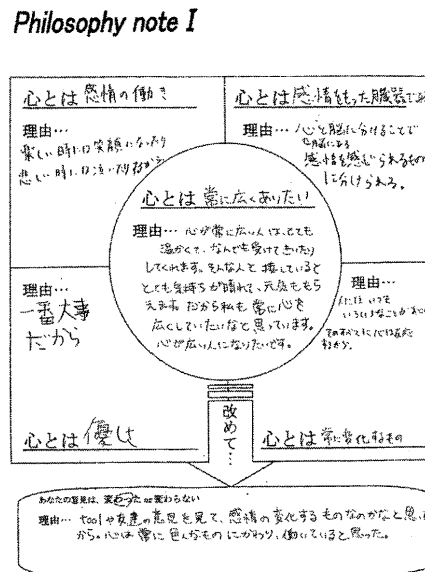 Philosophy note I
心とは 感情の働き
理由…
楽しい時には笑顔になったり
悲しい時には泣いたり
心とは 感情をもった臓器
理由… 心と脳に分けることで
感情を感じられるもの
に分けられる。
心とは 常に広くありたい
理由… 心が常に広い人は、とても
温かくて、なんでも受けて
してくれます。そんな人と接していると
とても気持ちが晴れて、元気ももら
えます。だから私も常に心を
広くしていたいなと思っています。
心が広い人になりたいです。
理由…
一番大事
だから
心とは 優しさ
理由…
心とは 常に変化するもの
改めて…
あなたの意見は、変わった or 変わらない
理由… や友達の意見を見て、感情の変化するものなのかなと思
から。心は常に色んなものにかわり、働いていると思った。